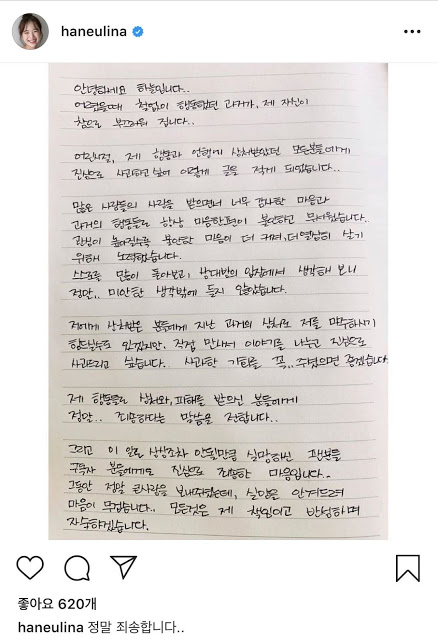 haneulina
안녕하세요 하늘입니다..
어렸을때 철없이 행동했던 과거가, 제 자신이
참으로 부끄러워 집니다..
어린시절, 제 행동과 언행에 상처받았던 모든분들에게
진심으로 사과하고 싶어 이렇게 글을 적게 되었습니다..
많은 사람들의 사랑을 받으면서 너무 감사한 마음과
과거의 행동들로 항상 마음한편이 불안하고 무서웠습니다.
관심이 높아질수록 불안한 마음이 더 커져, 더 열심히 살기
위해 노력했습니다.
스스로를 많이 돌아보고, 상대방의 입장에서 생각해 보니
정말.. 미안한 생각밖에 들지 않았습니다.
저에게 상처받은 분들에게 지난 과거의 상처로 저를 마주하시기
힘드실수도 있겠지만, 직접 만나서 이야기를 나누고 진심으로
사과드리고 싶습니다.. 사과할 기회를 꼭.. 주셨으면 좋겠습니다
제 행동들로 상처와, 피해를 받으신 분들에게
정말.. 죄송하다는 말씀을 전합니다..
그리고 이 일로 상상조차 안될만큼 실망하신 팬분들
구독자 분들에게도 진심으로 죄송한 마음입니다..
그동안 정말 큰사랑을 보내주셨는데, 실망을 안겨드려
마음이 무겁습니다.. 모든것은 제 책임이고 반성하며
자숙하겠습니다.
좋아요 620개
haneulina 정말 죄송합니다..